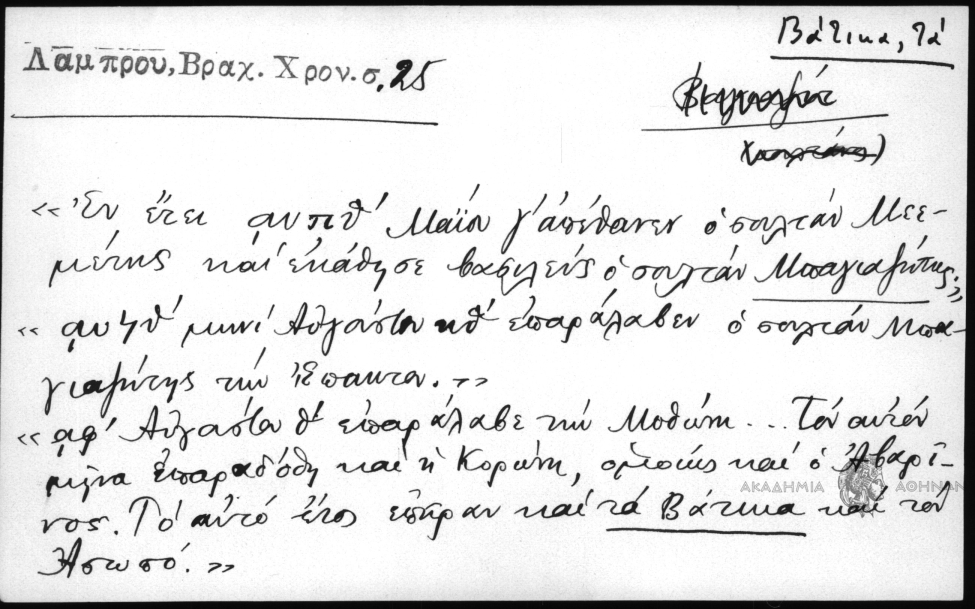 Βάτικα, τά
Λάμπρου, Βραχ. Χρον. σ. 25
«Ἐν ἔτει αυπθ' Μαΐου γ' ἀπέθανεν ὁ σουλτάν Μεε-
μέτης καί ἐκάθησε βασιλεύς ὁ σουλτάν Μπαγιαζήτης.»
«αυϟθ' μηνί Αὐγούστου κθ' ἐπαράλαβεν ὁ σουλτάν Μπα-
γιαζήτης τήν Ἔπακτον.»
«αφ' Αὐγούστου θ' ἐπαράλαβε τήν Μοθώνη... Τόν αὐτόν
μῆνα ἐπαραδόθη καί ἡ Κορώνη, ὁμοίως καί ὁ Ἀβαρῖ-
νος. Τό αὐτό ἔτος ἐπῆραν καί τά Βάτικα καί τόν
Ἀσωπό.»
ΑΚΑΔΗΜΙΑ ΑΘΗΝΩΝ